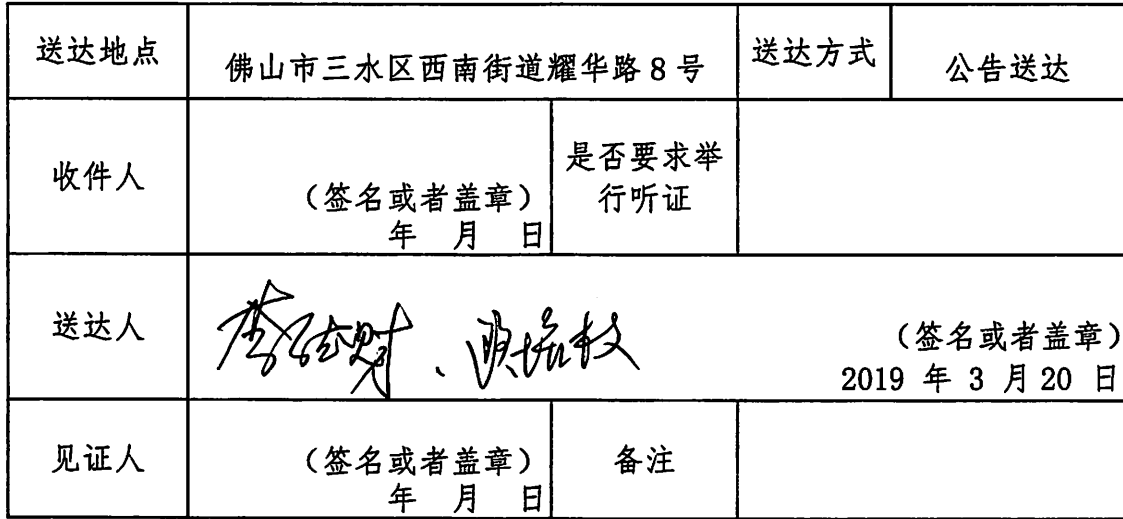 送达地点 佛山市三水区西南街道耀华路8号 送达方式 公告送达
收件人 (签名或者盖章) 年 月 日 是否要求举行听证
送达人 (签名或者盖章)
2019 年 3 月 20 日
见证人 (签名或者盖章) 年 月 日 备注